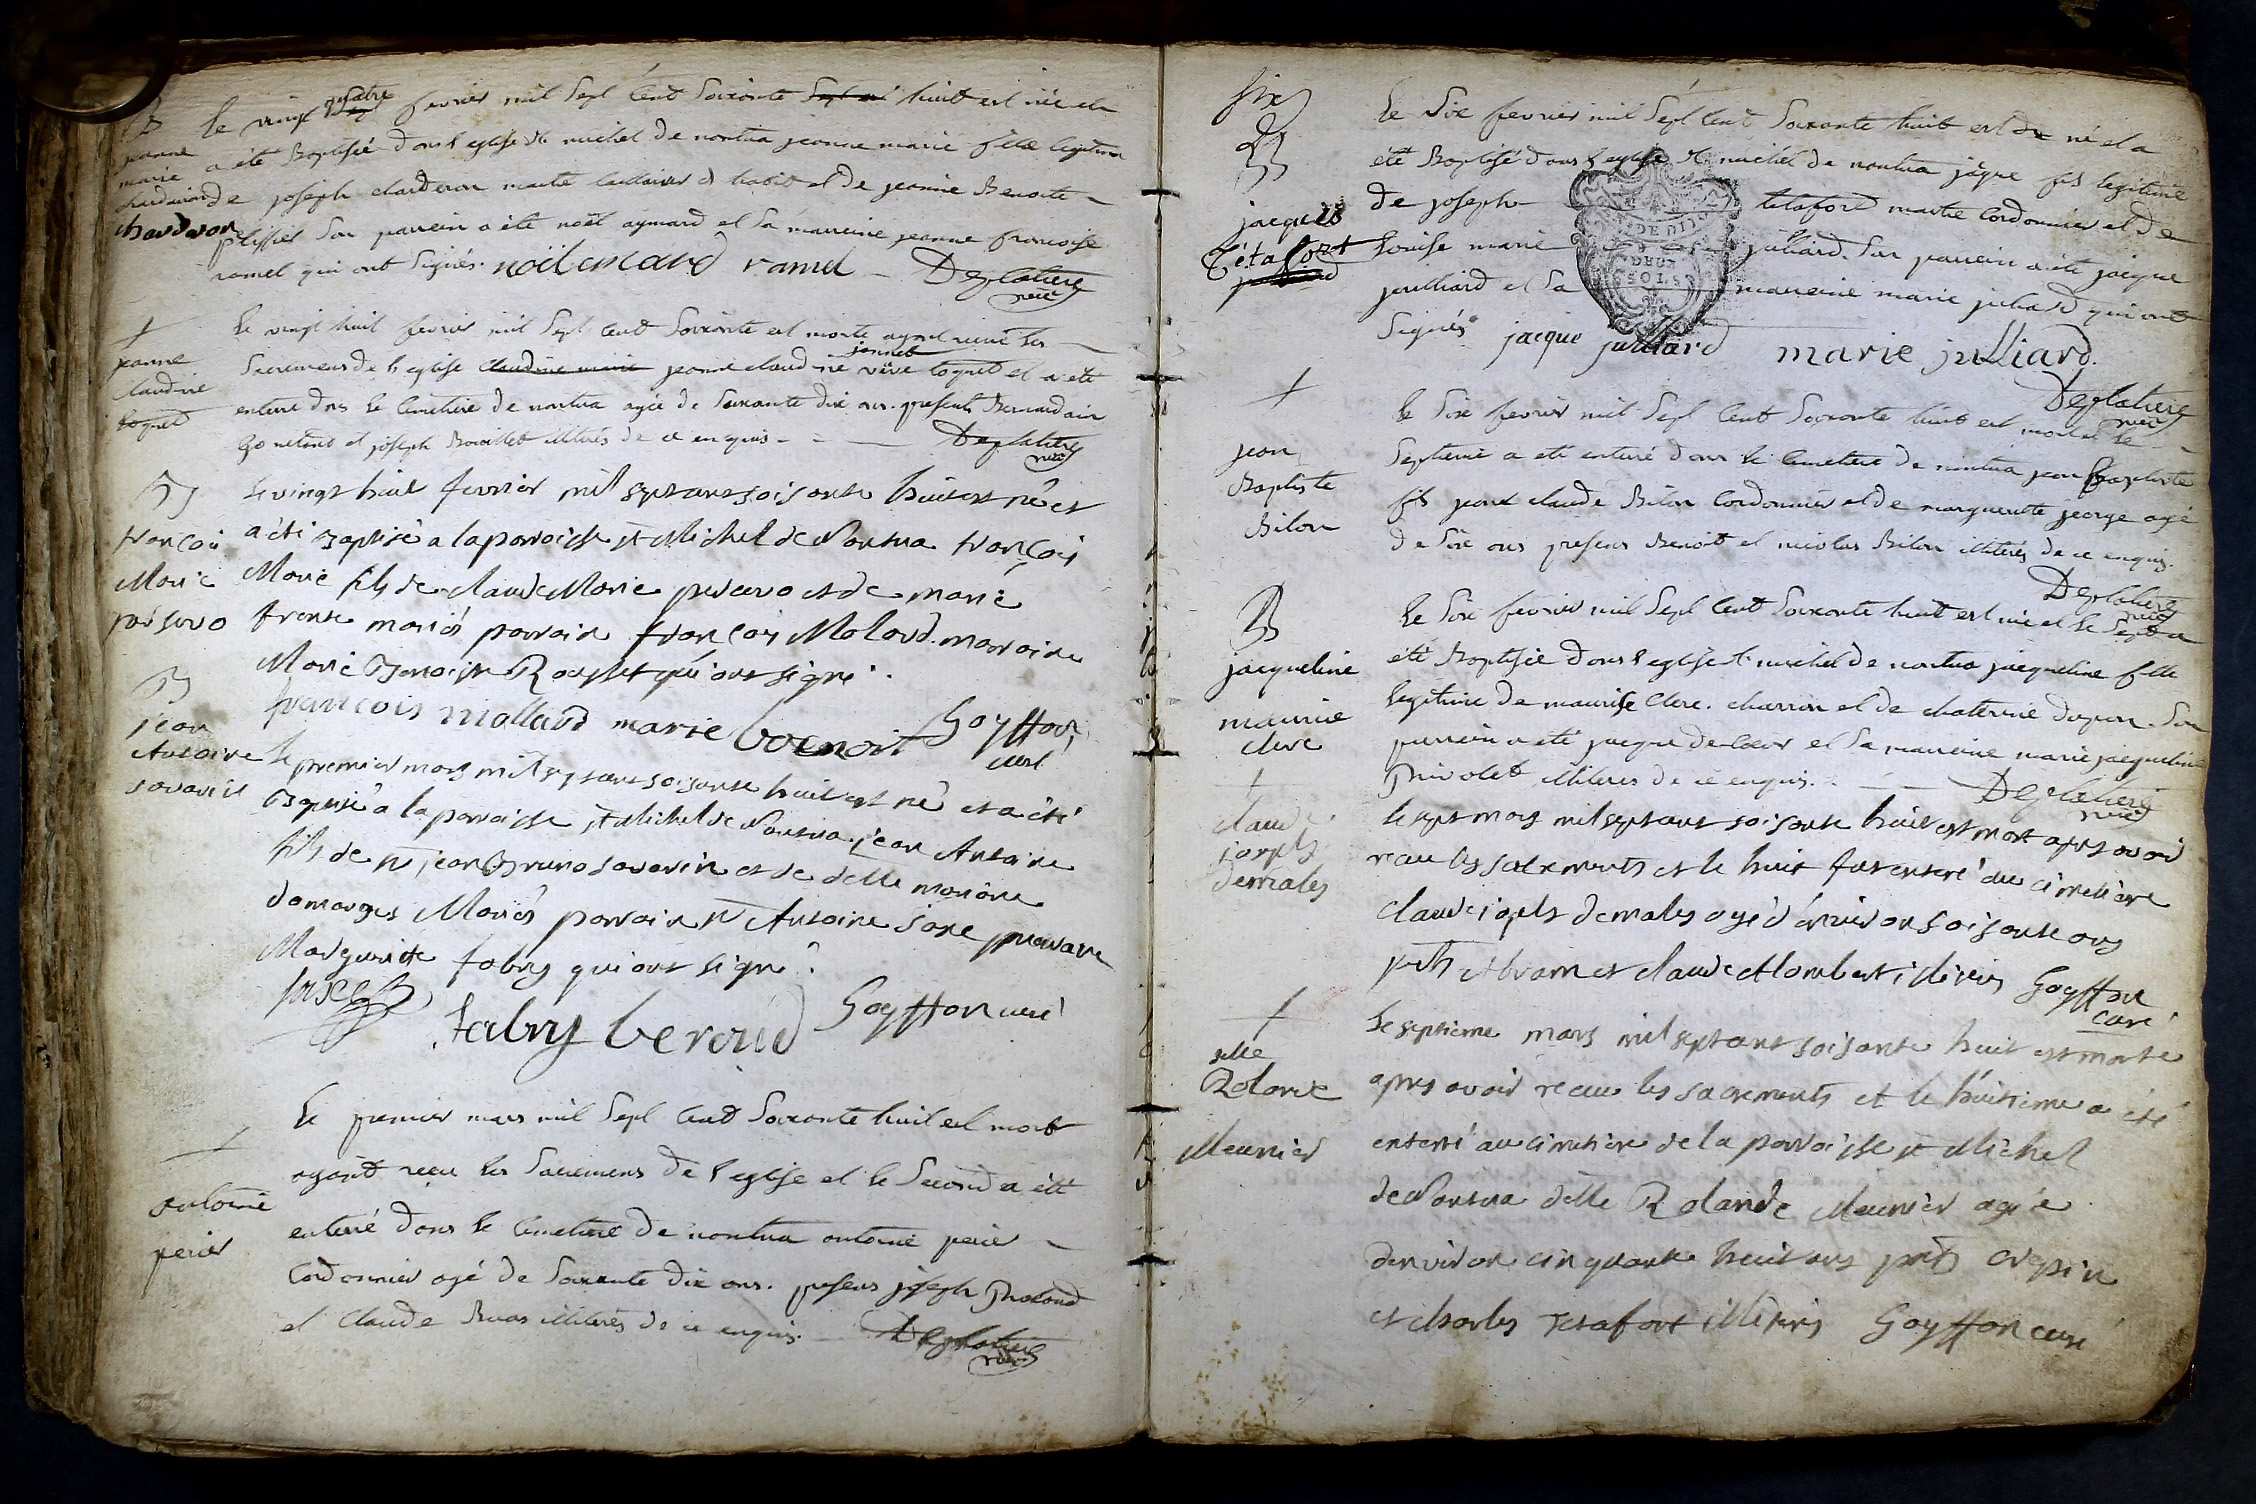 B
jeanne
marie
chardaron
Le vingt quatre fevrier mil Sept Cent Soixante huit est née et
a été Baptisée dans l'eglise St michel de nantua jeanne marie fille legitime
de joseph charderon maitre tailleur d'habit et de jeanne Benoite
plissier Son parrein a été noël aymard et Sa marreine jeanne francoise
ramel qui ont Signés. noël emard ramel Deplatiere
vicr
+
jeanne
claudine
Coquet
Le vingt huit fevrier mil Sept Cent Soixante est morte ayant reçu les
Sacremens de l'eglise jeanne claudine jannet vëve Coquet et a été
enterré dans le Cimetiere de nantua agée de Soixante dix ans. presents Bernardain
et joseph Bouillet illitérés de ce enquis - - Deplatiere
vicr
B
françois
Marie
persavo
Le vingt huit fevrier mil septcent soisante huit est né et
a été Baptisé a la parroisse st Michel de Nantua françois
Marie fils de claude Marie persavo et de marie
mariés parrain françois Molard marraine
Marie Benoiste Rousset qui ont signé.
francois mollard marie benoit Goyffon
curé
B
jean
Antoine
savarin
Le premier mars mil septcent soisante huit est né et a été
Baptisé a la parroisse st Michel de Nantua jean Antoine
fils de sr jean Bruno savarin et de delle mariane
domanges Mariés parrain sr Antoine marraine
Marguerite fabry qui ont signé.
fabry beroud Goyffon curé
+
antoine
perier
Le premier mars mil Sept Cent Soixante huit est mort
ayant reçu les Sacremens de l'eglise et le Second a été
enterré dans le Cimetiere de nantua antoine perier
Cordonnier agé de Soixante dix ans. presens joseph
et Claude illitérés de ce enquis. Deplatiere
vicr
six
B
jacques
Tétafort
Le Six fevrier mil Sept Cent Soixante huit est né et a
été Baptisé dans l'eglise St michel de nantua jâque fils legitime
de joseph tetafort maitre Cordonnier et de
Louise marie julliard. Son parrein a été jacque
juilliard et Sa marreine marie juliard qui ont
Signés jacque julliard marie julliard.
Deplatiere
vicr
+
jean
Baptiste
Bilon
Le Six fevrier mil Sept Cent Soixante huit est mort et le
Septieme a été enterré dans le Cimetiere de nantua jean Baptiste
fils jean claude Bilon Cordonnier et de marguerite jeorge agé
de Six ans presens Benoit et nicolas Bilon illitérés de ce enquis.
Deplatiere
vicr
B
jacqueline
maurice
clerc
Le Six fevrier mil Sept Cent Soixante huit est née et le Sept a
été Baptisée dans l'eglise St michel de nantua jacqueline fille
legitime de maurise Clerc. charron et de chaterine dupon. Son
parrein a été jacque et Sa marreine marie jacqueline
privolet illiteres de ce enquis. Deplatiere
vicr
+
claude
joseph
demales
Le sept mars mil septcent soisante huit est mort apres avoir
receu les sacrements et le huit fut enterré au cimetière
claude joseph demales agé d'environ soisante ans
pnts Abram et claude Mombert illitérés Goyffon
curé
+
delle
Rolande
Meunier
Le septieme mars mil septcent soisante huit est morte
apres avoir receu les sacrements et le huitieme a été
enterré au cimetière de la parroisse st Michel
de Nantua delle Rolande Meunier agée
d'environ cinquante huit ans pnts crepin
et charles Tetafort illitérés Goyffon curé
DEUX
SOLS